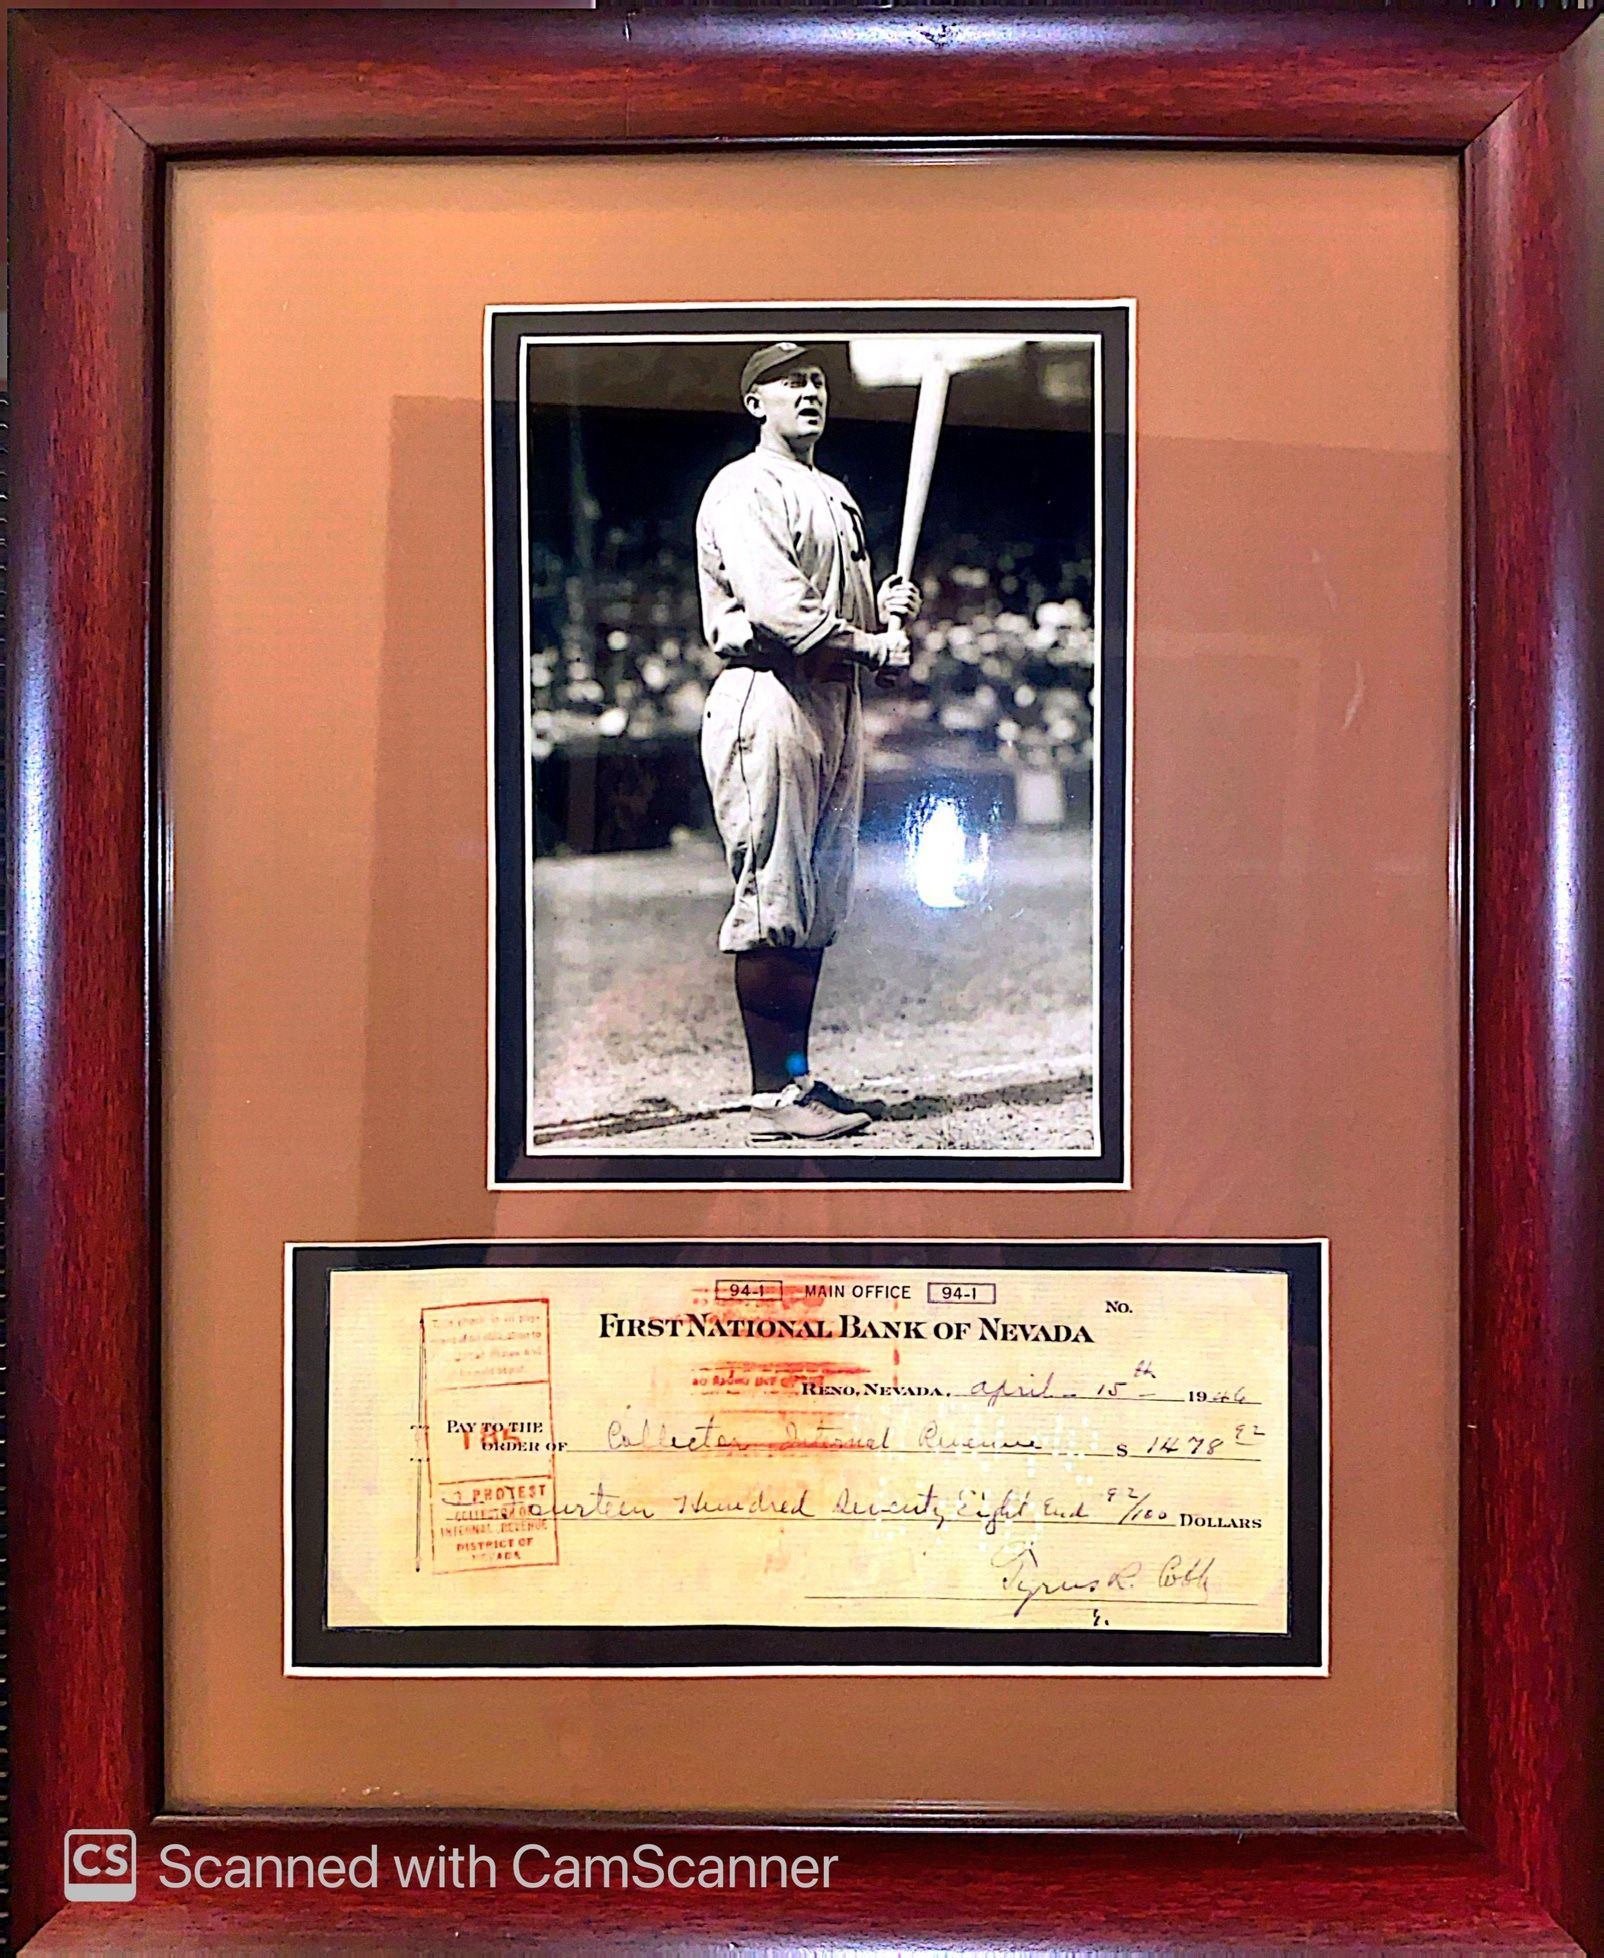 94-1 MAIN OFFICE 94-1
No.
FIRST NATIONAL BANK OF NEVADA
RENO, NEVADA, april 15th 1946
PAY TO THE
ORDER OF Collector Internal Revenue $ 1478 92
Fourteen Hundred Seventy Eight and 92/100 DOLLARS
PROTEST
COLLECTOR OF
INTERNAL REVENUE
DISTRICT OF
NEVADA
Tyrus R. Cobb
CS Scanned with CamScanner